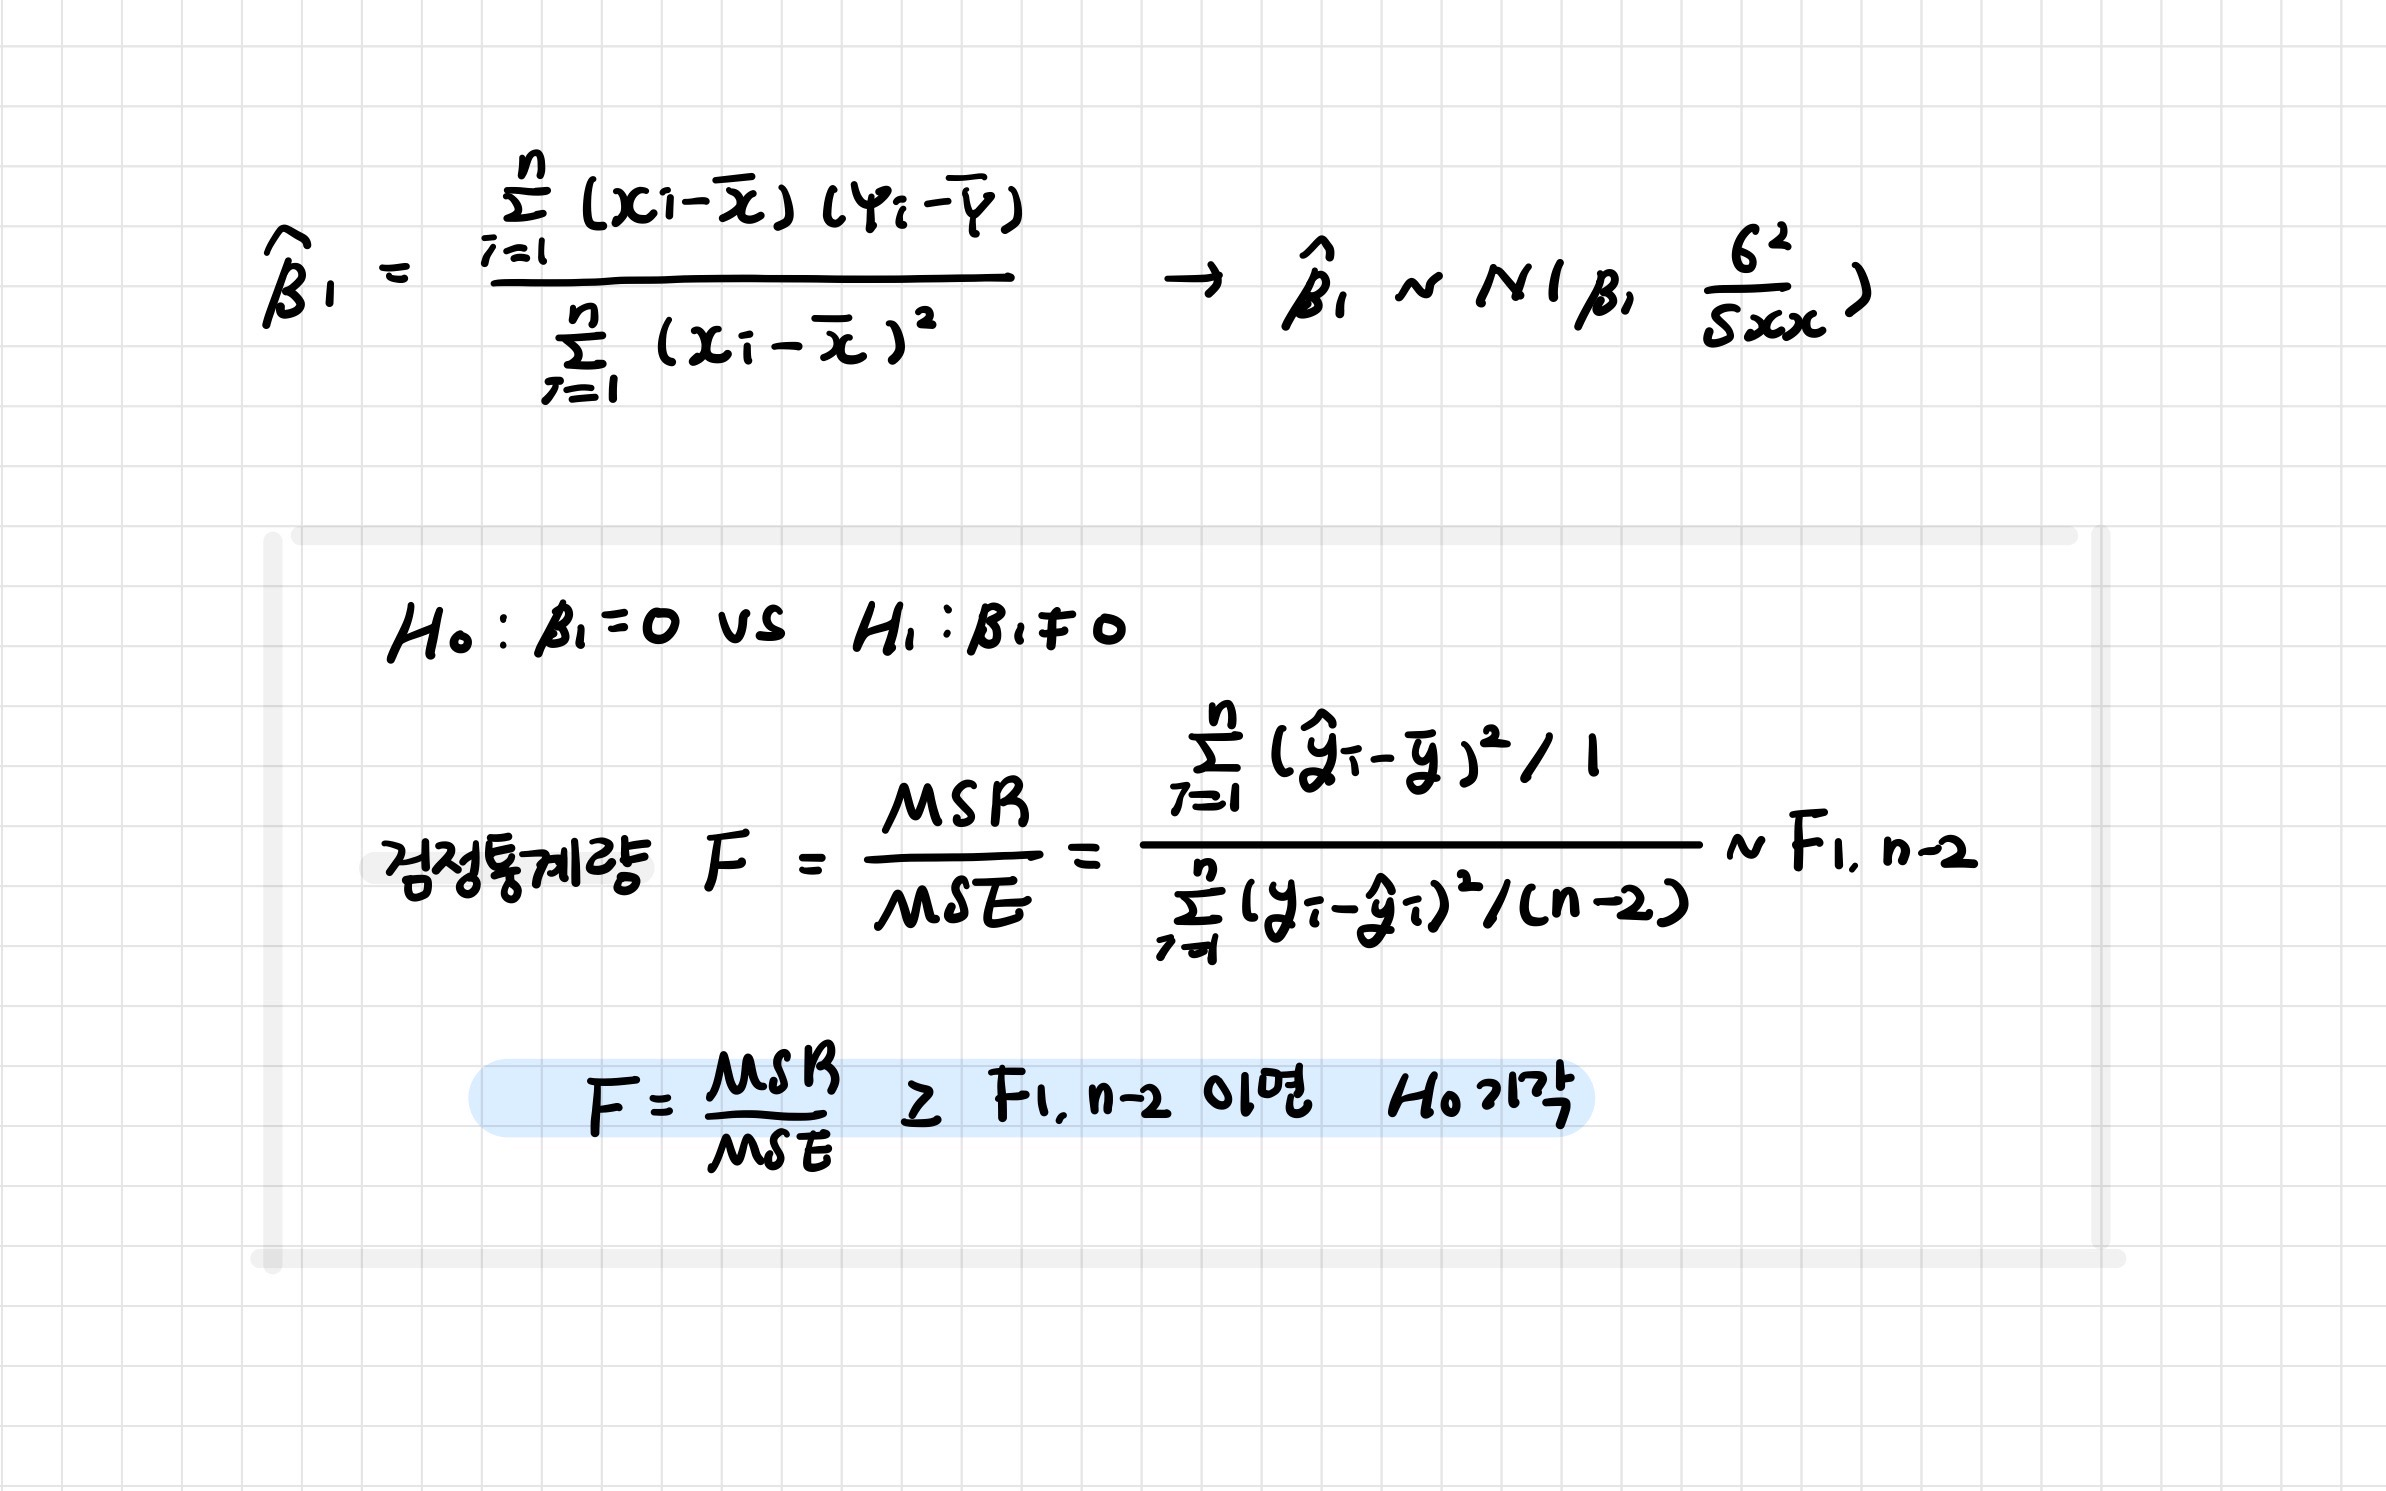 β̂₁ = Σⁿᵢ₌₁ (xᵢ - x̄)(Yᵢ - Ȳ) / Σⁿᵢ₌₁ (xᵢ - x̄)² → β̂₁ ~ N(β₁, σ²/Sxx)
H₀ : β₁ = 0 vs H₁ : β₁ ≠ 0
검정통계량 F = MSR/MSE = Σⁿᵢ₌₁ (ŷᵢ - ȳ)² / 1 / Σⁿᵢ₌₁ (yᵢ - ŷᵢ)² / (n-2) ~ F₁, n-2
F = MSR/MSE ≥ F₁, n-2 이면 H₀ 기각